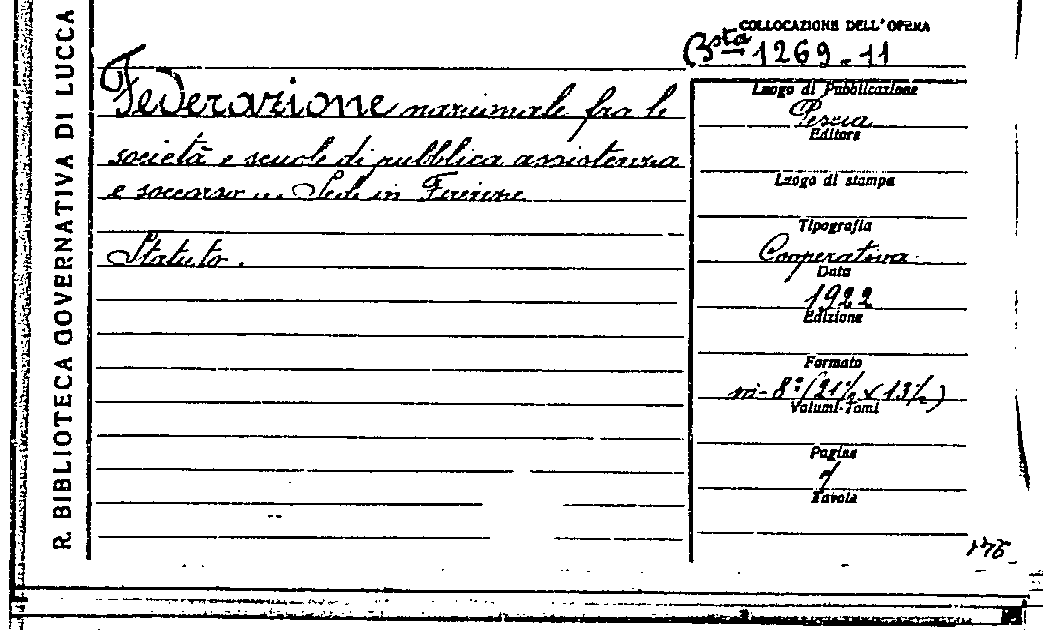 R. BIBLIOTECA GOVERNATIVA DI LUCCA
COLLOCAZIONE DELL'OPERA
Bsta 1269.11
Federazione nazionale fra le
società e scuole di pubblica assistenza
e soccorso... Sede in Firenze
Statuto.
Luogo di Pubblicazione
Pescia
Editore
Luogo di stampa
Tipografia
Cooperativa
Data
1922
Edizione
Formato
in-8°(21½ x 13½)
Volumi-Tomi
Pagine
7
Tavole